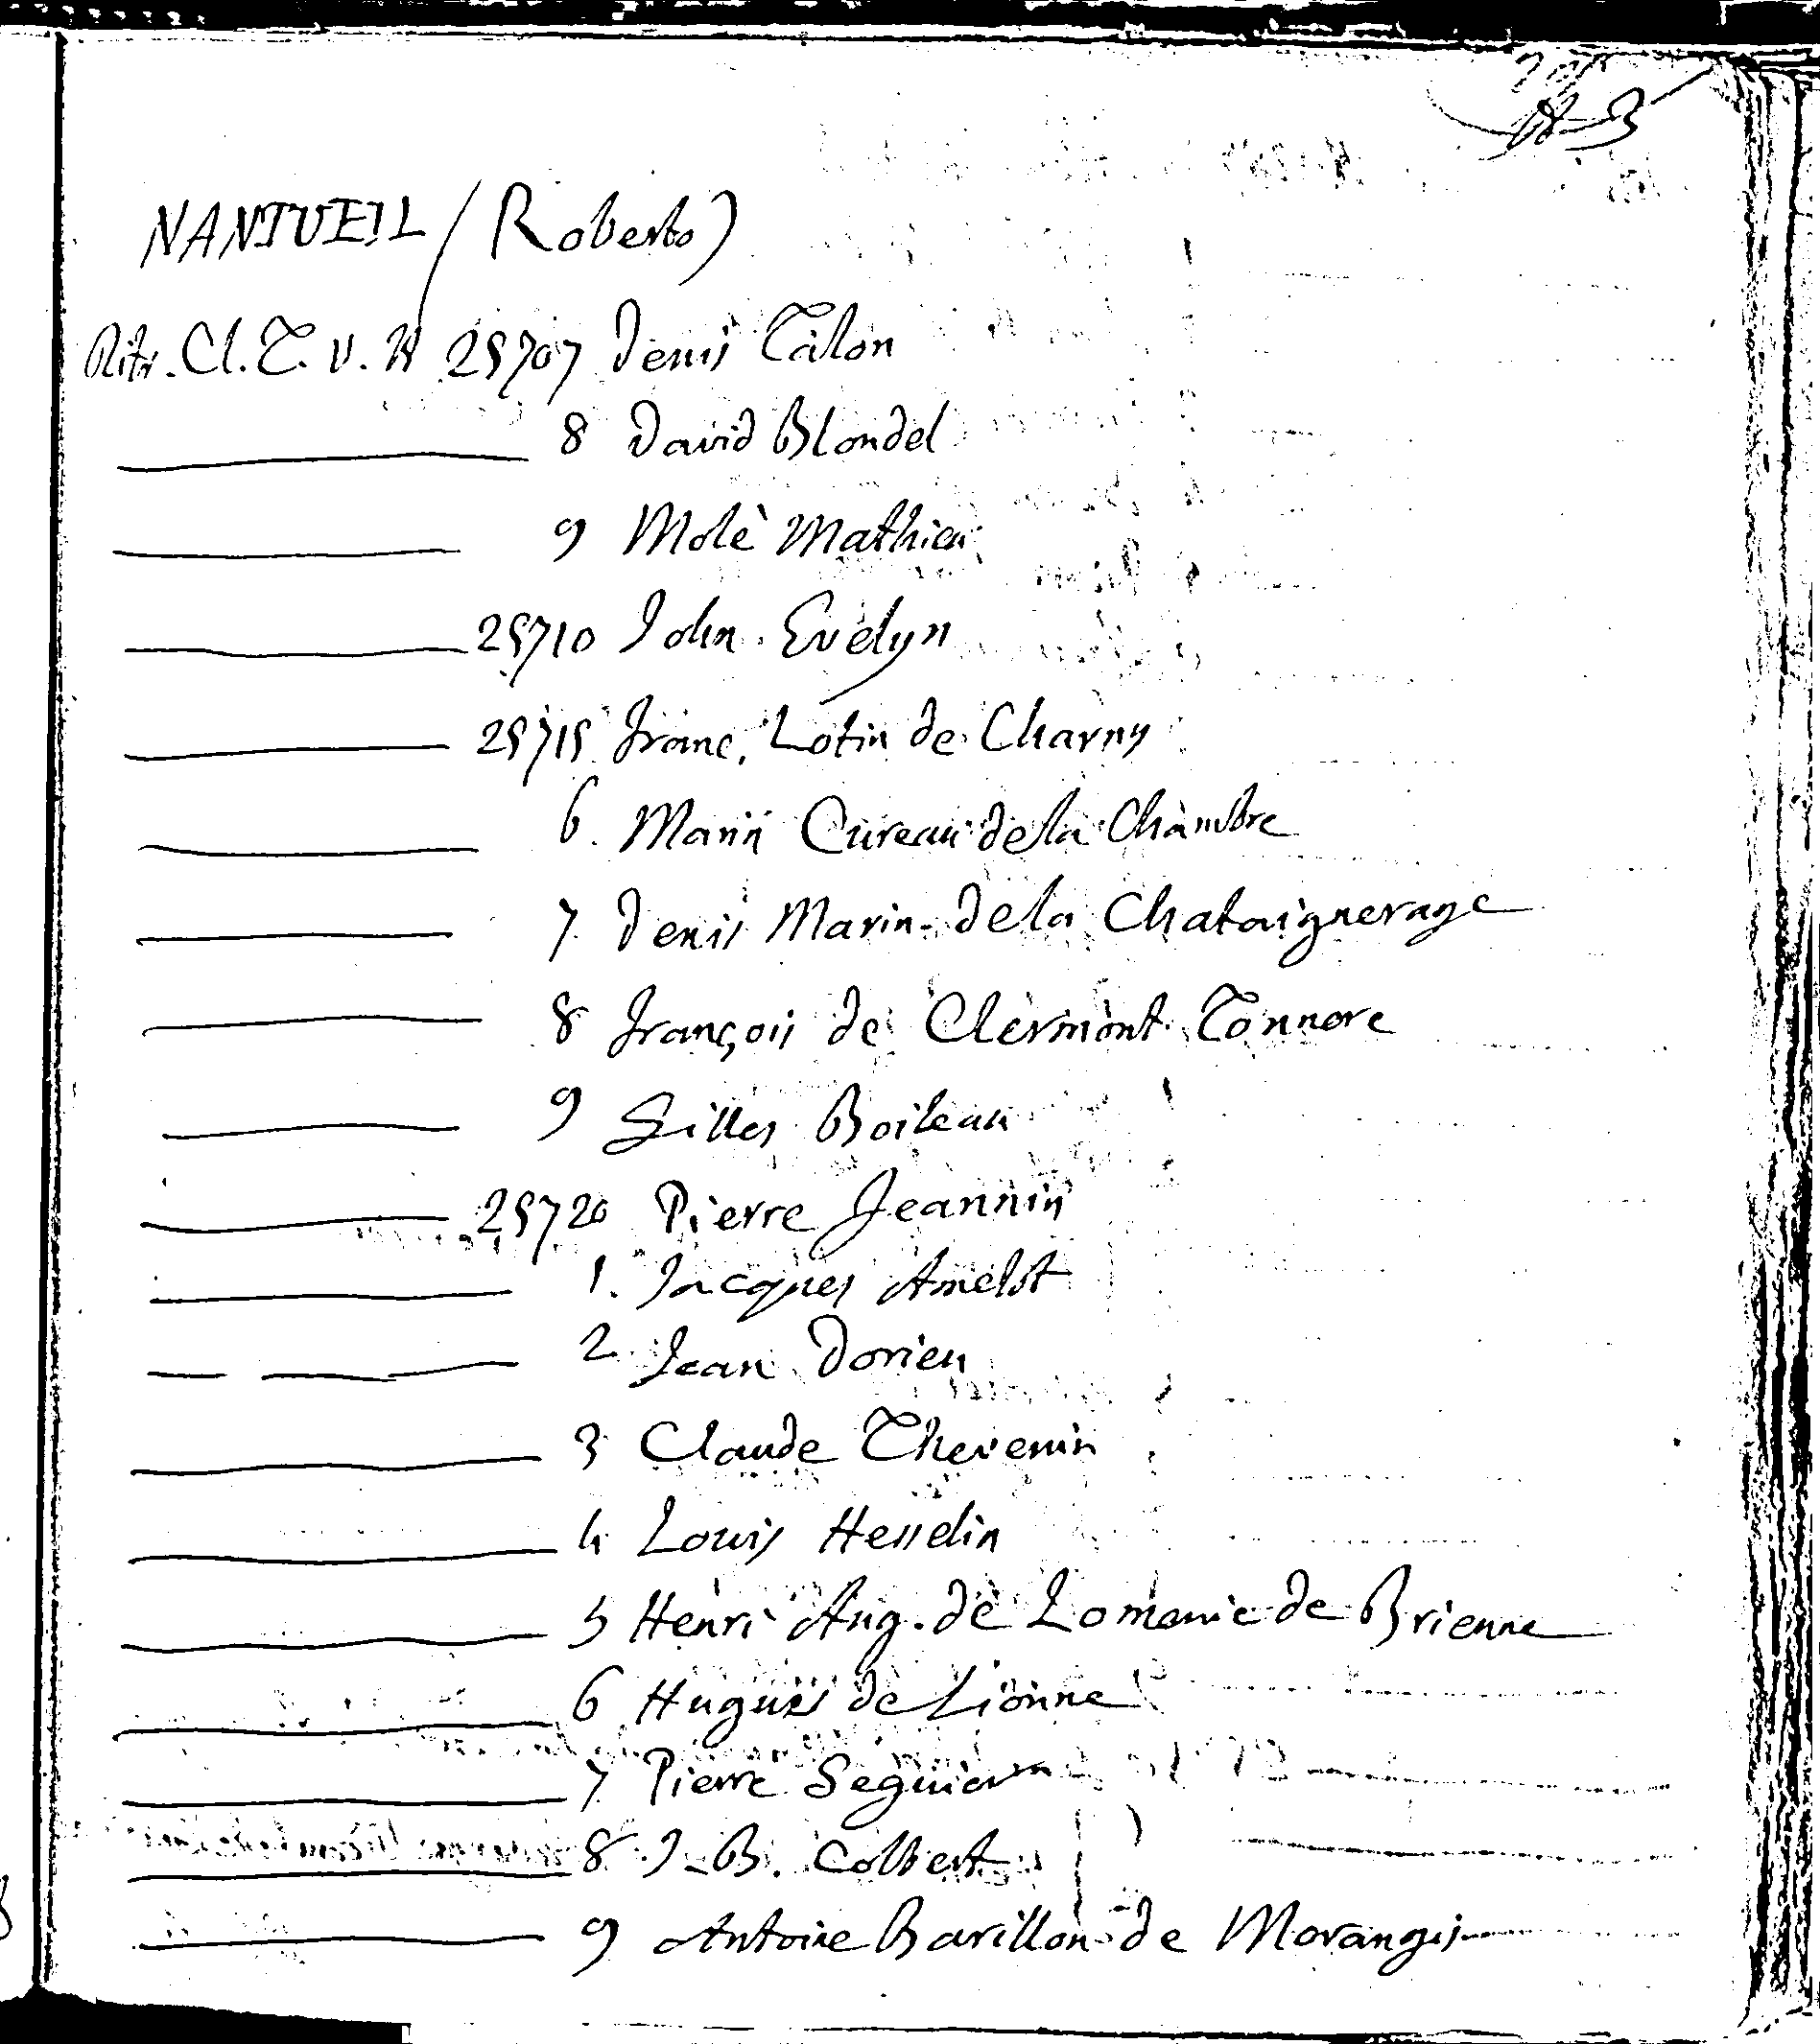 NANTUEIL (Roberto)
Ritr. Cl. T. v. N 25707 Denis Talon
8 David Blondel
9 Molè Mathieu
25710 John Evelyn
25715 Franc. Lotin de Charny
6. Marin Cureau de la Chambre
7 Denis Marin de la Chataigneraye
8 François de Clermont Tonnere
9 Gilles Boileau
25720 Pierre Jeannin
1. Jacques Amelot
2 Jean Dorieu
3 Claude Thevenin
4 Louis Hesselin
5 Henri Aug. de Lomenie de Brienne
6 Hugues de Lionne
7 Pierre Seguier
8 J-B. Colbert
9 Antoine Barillon de Morangis